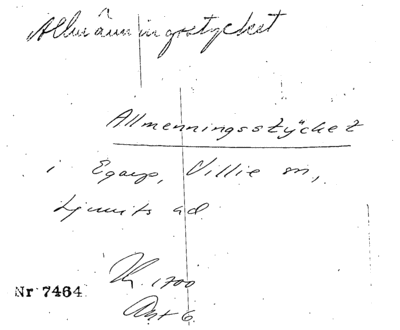 Allmänningsstycket
Allmenningsstÿcket
i Egarp, Villie sn,
Ljunits hd
1700
Nr 7464
Akt 6